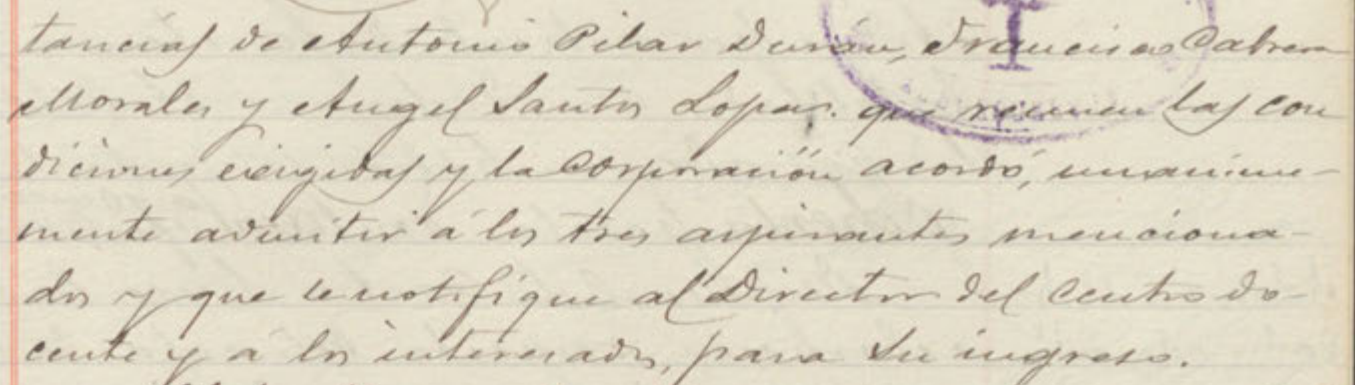 tancias de Antonio Pilar Durán, Francisco Cabrera
Morales y Angel Santos Lopez. que reunen las con
diciones exigidas y, la Corporación acordó, unanime-
mente admitir á los tres aspirantes menciona-
dos y que se notifique al Director del Centro do-
cente y á los interesados, para su ingreso.